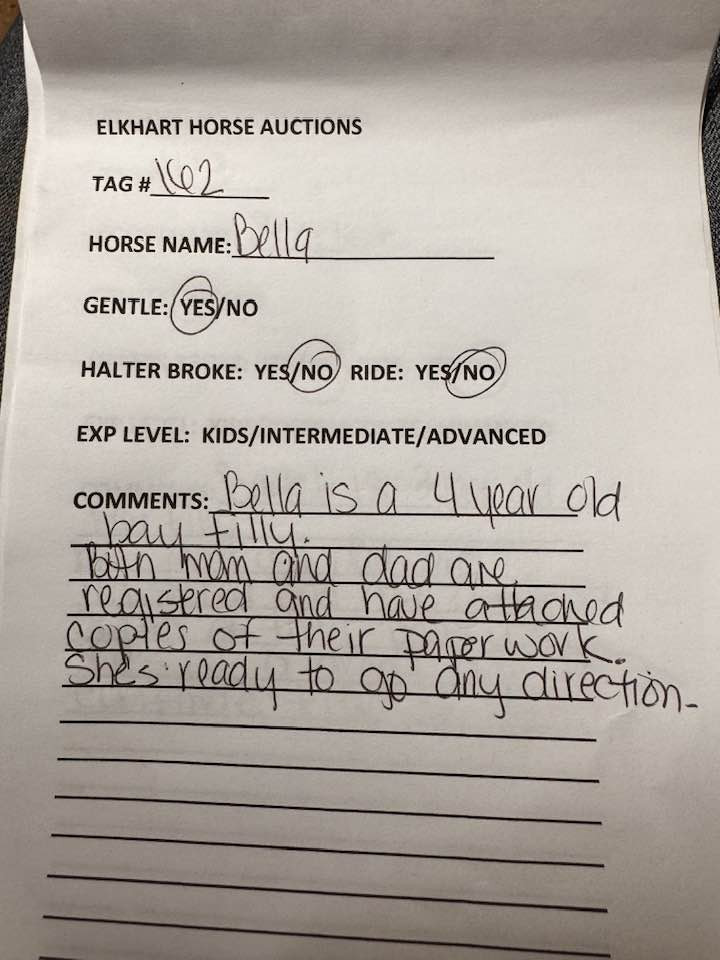 ELKHART HORSE AUCTIONS
TAG # 162
HORSE NAME: Bella
GENTLE: YES/NO
HALTER BROKE: YES/NO RIDE: YES/NO
EXP LEVEL: KIDS/INTERMEDIATE/ADVANCED
COMMENTS: Bella is a 4 year old
bay filly.
Both mom and dad are
registered and have attached
copies of their paper work.
She's ready to go any direction.